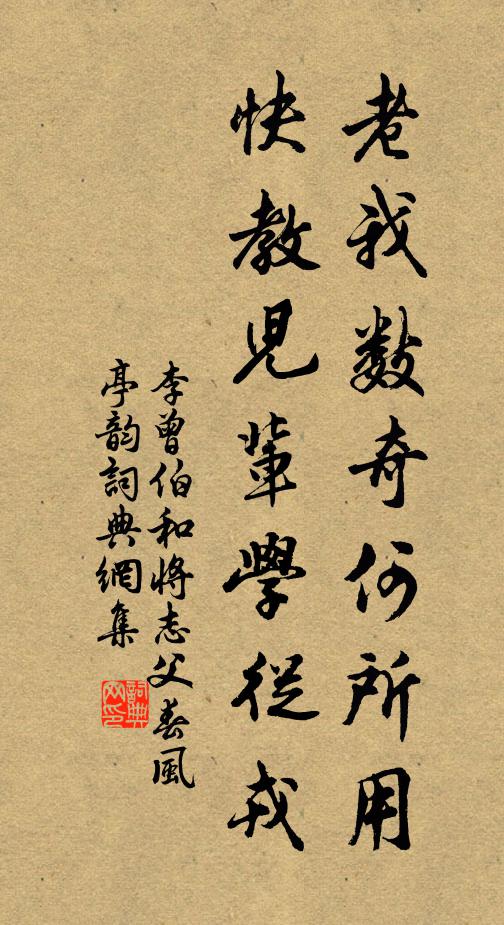 老我數奇何所用
快教兒輩學從戎
李曾伯和將志父春風
亭韵詞典網集
詞典网印